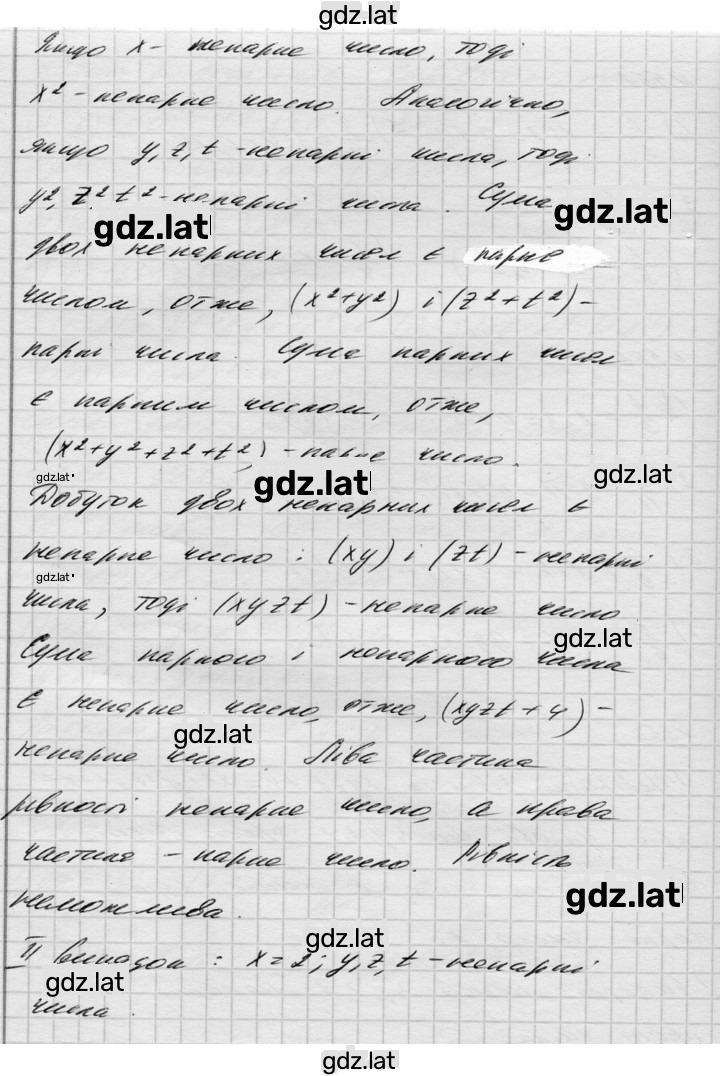 gdz.lat
Якщо x - непарне число, тоді
x² - непарне число. Аналогічно,
якщо y, z, t - непарні числа, тоді
y², z² t² - непарні числа. Сума
gdz.lat
gdz.lat
двох непарних чисел є парне
числом, отже, (x²+y²) і (z²+t²) -
парні числа. Сума парних чисел
є парним числом, отже,
(x²+y²+z²+t²) - парне число.
gdz.lat
gdz.lat
gdz.lat
Добуток двох непарних чисел є
непарне число: (xy) і (zt) - непарні
gdz.lat
числа, тоді (xyzt) - непарне число
gdz.lat
Сума парного і непарного числа
є непарне число, отже, (xyzt + 4) -
gdz.lat
непарне число. Ліва частина
рівності непарне число, а права
частина - парне число. Рівність
gdz.lat
неможлива.
gdz.lat
II випадок: x = 2; y, z, t - непарні
gdz.lat
числа.
gdz.lat